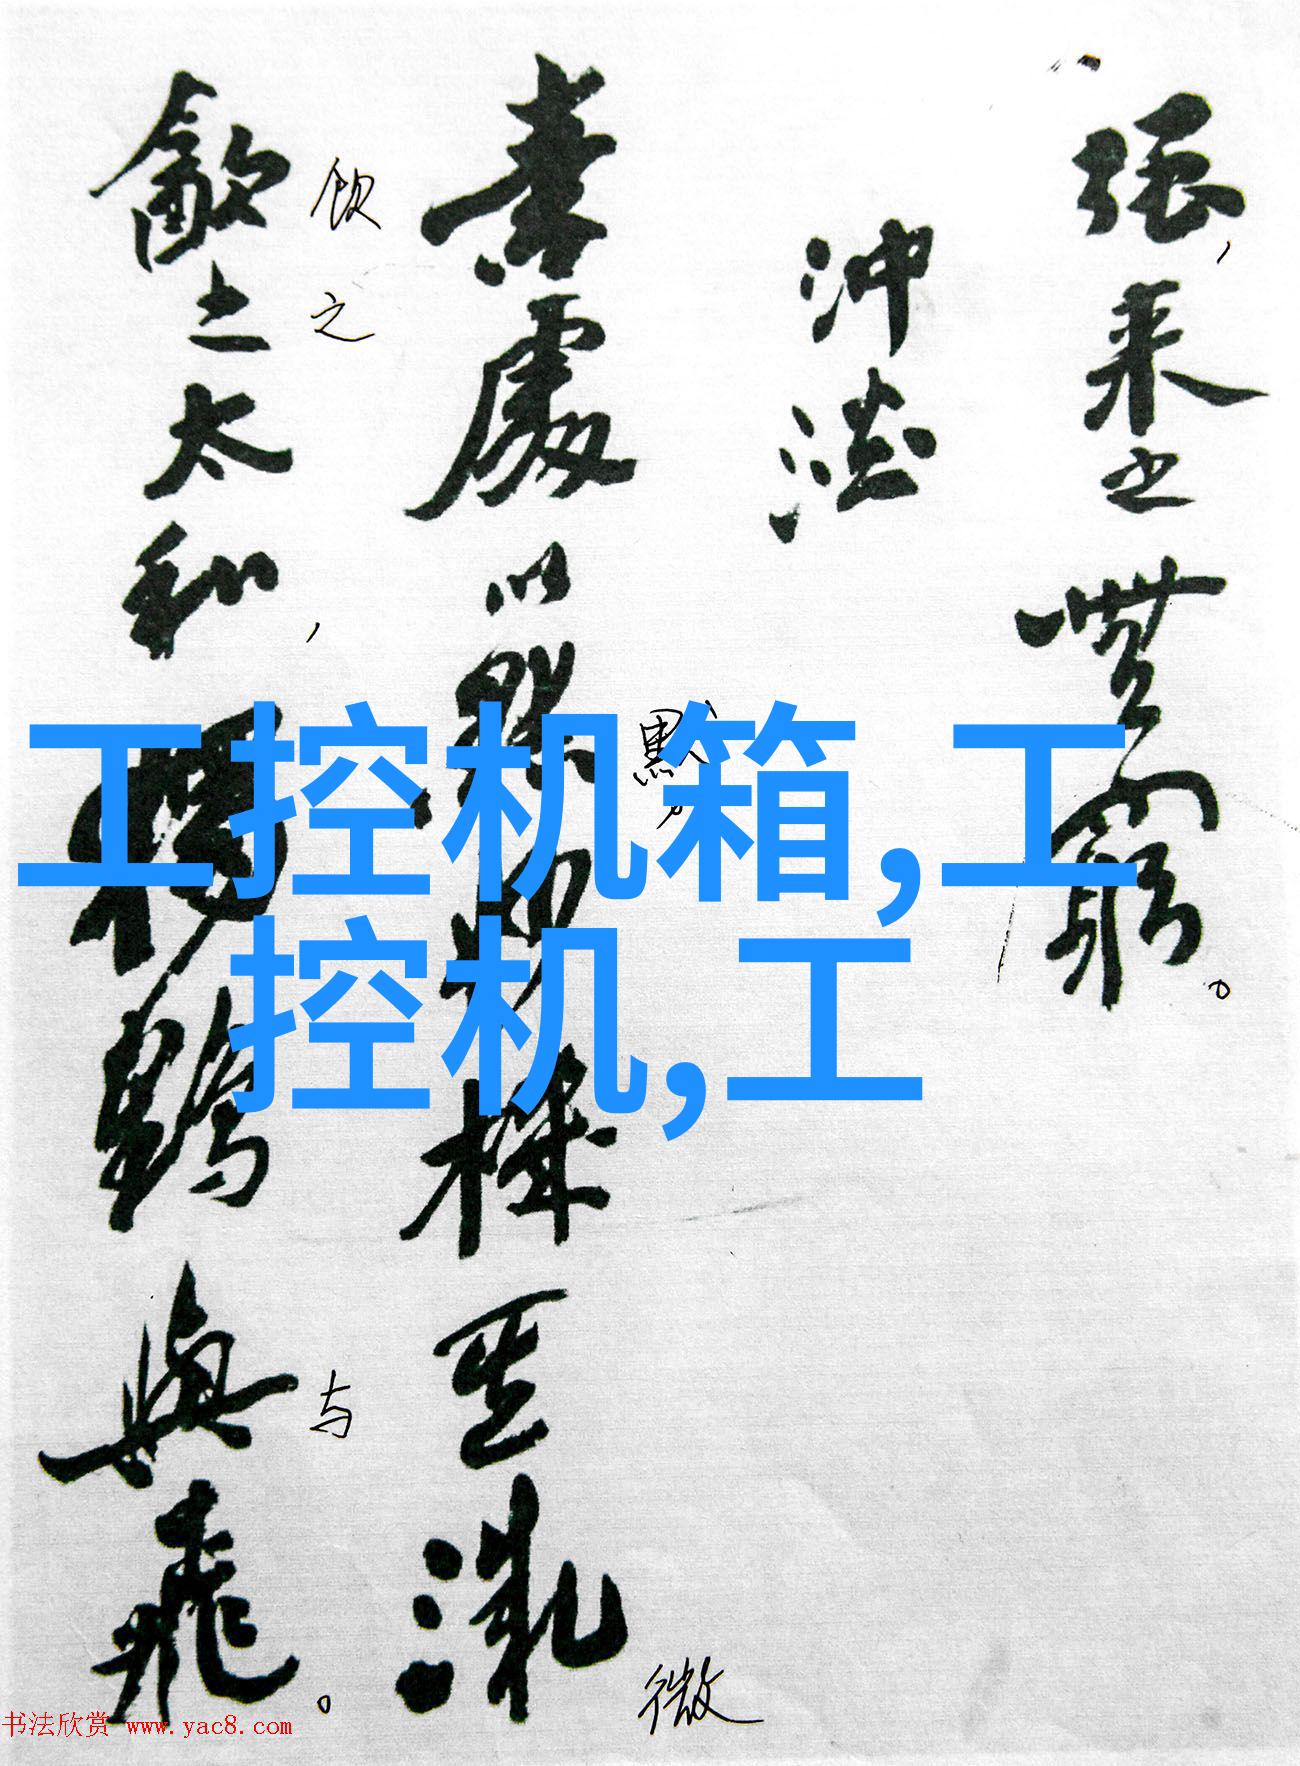 强，来之無窮。
沖澹
素處以默妙機其微
默，
微
歙之太和，獨鶴與飛。
饮之
与
工控机箱,工
控机,工
书法欣赏 www.yac8.com